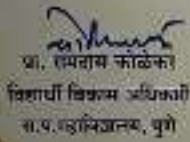 प्रा. रामदास काळेकर
विद्यार्थी विकास अधिकारी
स.प.महाविद्यालय, पुणे